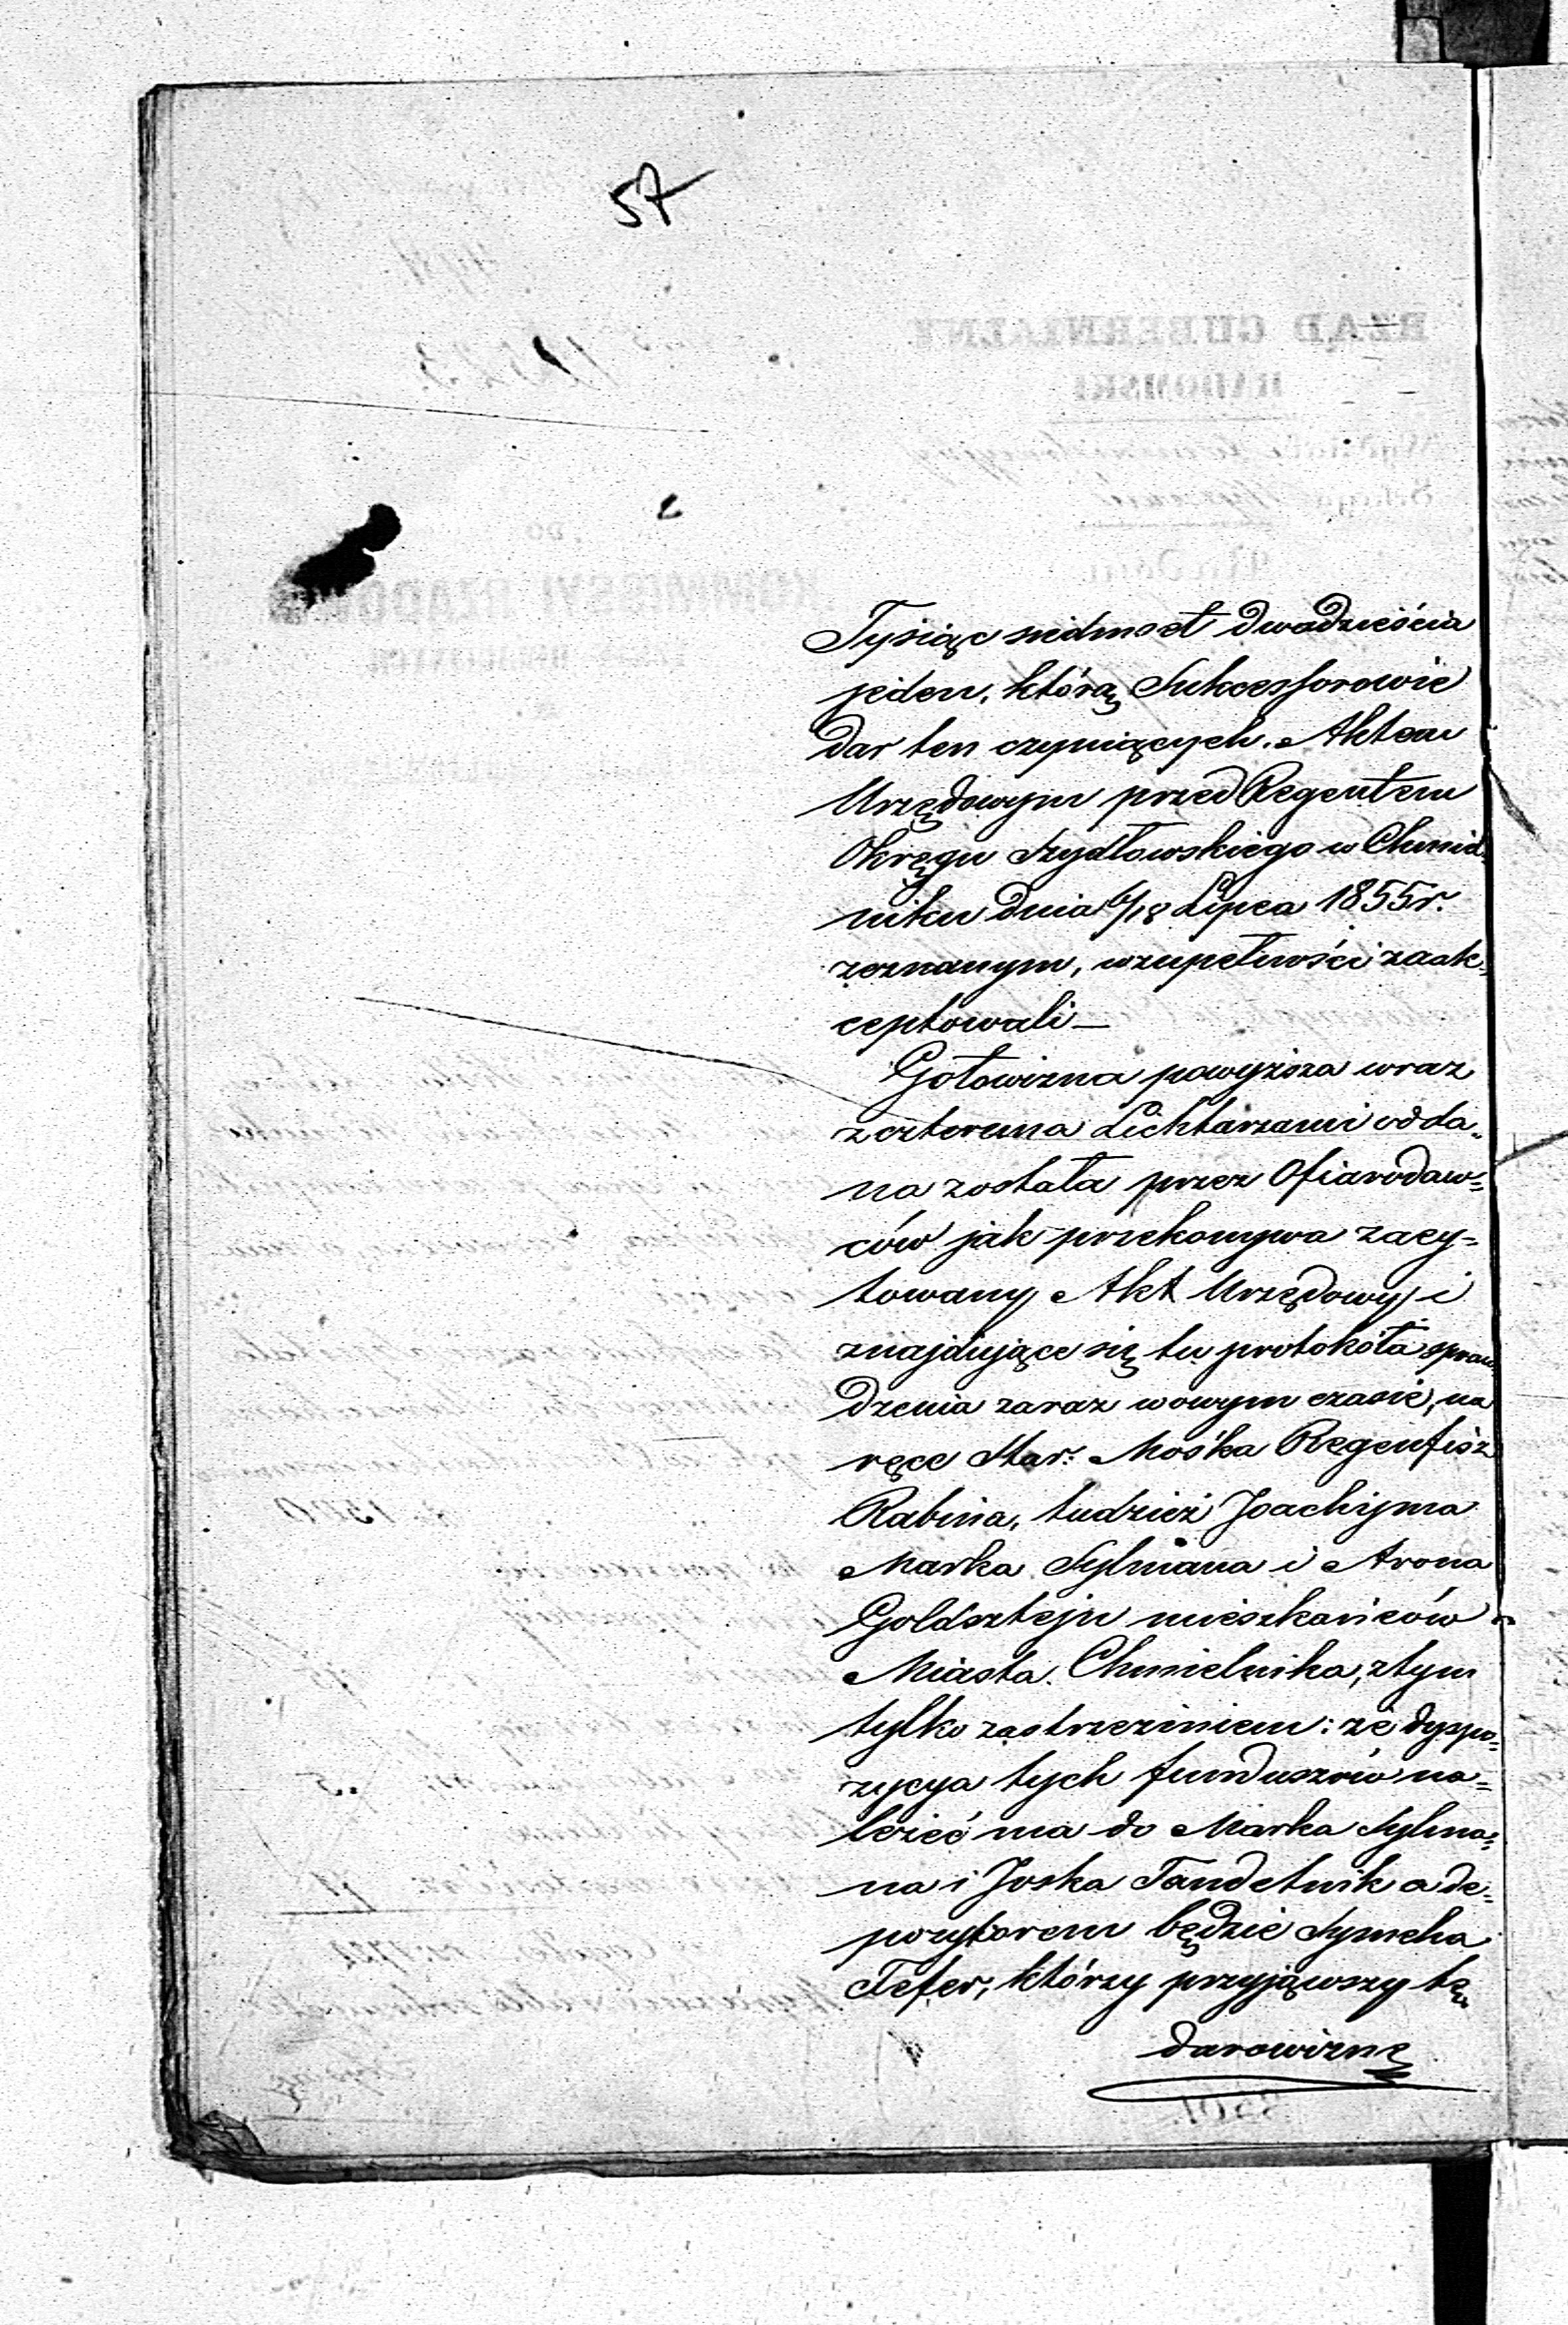 57
Tysiąc siedmset dwadzieścia
jeden, którą Sukcessorowie
dar ten czyniących. Aktem
Urzędowym przed Regentem
Okręgu Szydłowskiego w Chmiel-
niku dnia 6/18 Lipca 1855 r.
zeznanym, wzupełności zaak=
ceptowali—
Gotowizna powyższa wraz
z czterema Lichtarzami odda=
na została przez Ofiarodaw=
ców jak przekonywa zacy=
towany Akt Urzędowy i
znajdujące się tu protokóła spraw
dzenia zaraz wowym czasie, na
ręce Star: Mośka Regenfisz
Rabina, tudzież Joachyma
Marka Sylmana i Arona
Goldsztejn mieszkańców
Miasta Chmielnika, ztym
tylko zastrzeżeniem: że dyspo=
zycya tych funduszów na=
leżeć ma do Marka Sylma=
na i Joska Tandetnik a de=
pozytorem będzie Symcha
Tefer, którzy przyjąwszy tę
darowiznę